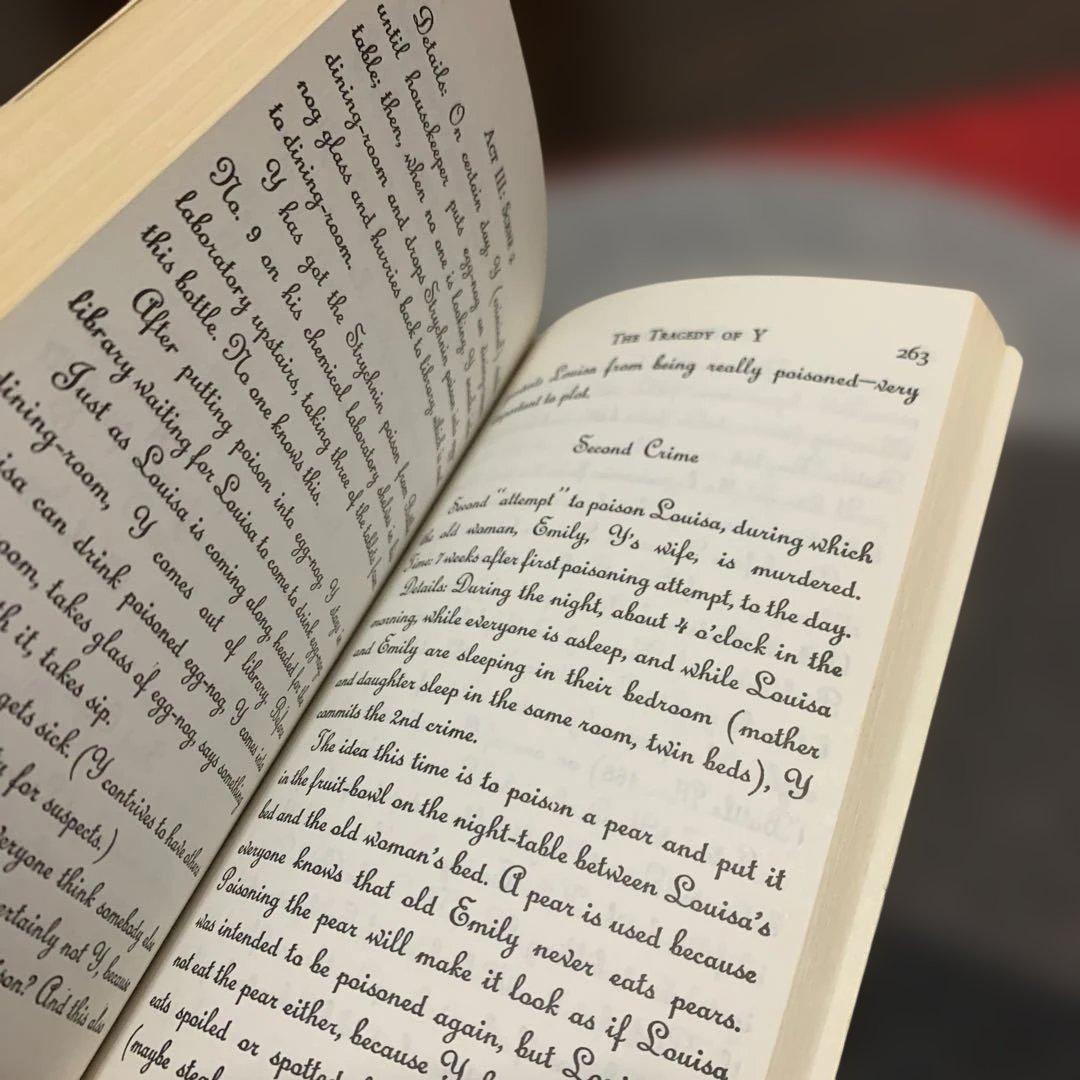 ACT III: SCENE 2
Details: On certain day, Y
until housekeeper puts egg-nog on
table; then, when no one is looking, Y
dining-room and drops Strychnin poison into
nog glass and hurries back to library,
to dining-room.
Y has got the Strychnin poison from
No. 9 on his chemical laboratory shelves in
laboratory upstairs, taking three of the tablets from
this bottle. No one knows this.
After putting poison into egg-nog, Y stays in
library waiting for Louisa to come to drink egg-nog.
Just as Louisa is coming along, headed for the
dining-room, Y comes out of library. Before
can drink poisoned egg-nog, Y comes into
takes glass of egg-nog, says something
it, takes sip.
gets sick. (Y contrives to have others
for suspects.)
everyone think somebody else
certainly not Y, because
And this also
THE TRAGEDY OF Y
263
Louisa from being really poisoned—very
to plot.
Second Crime
Second "attempt" to poison Louisa, during which
the old woman, Emily, Y's wife, is murdered.
Time: 7 weeks after first poisoning attempt, to the day.
Details: During the night, about 4 o'clock in the
morning, while everyone is asleep, and while Louisa
and Emily are sleeping in their bedroom (mother
and daughter sleep in the same room, twin beds), Y
commits the 2nd crime.
The idea this time is to poison a pear and put it
in the fruit-bowl on the night-table between Louisa's
bed and the old woman's bed. A pear is used because
everyone knows that old Emily never eats pears.
Poisoning the pear will make it look as if Louisa
was intended to be poisoned again, but
not eat the pear either, because Y
eats spoiled or spotted
(maybe